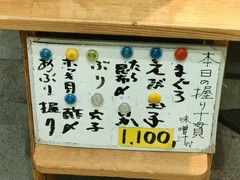 本日の握り十貫
味噌汁付
まぐろ
えび
玉子
たら昆布〆
ぶり
穴子
ホッキ貝
酢〆
あぶり握り
1,100